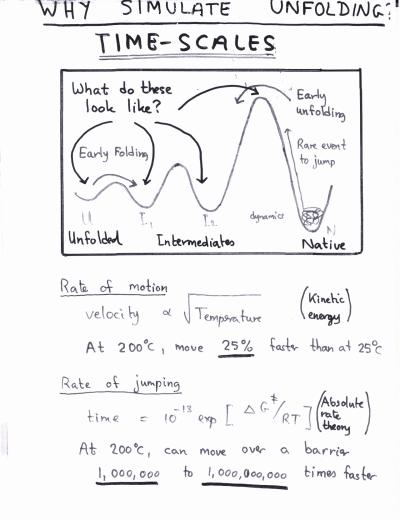 WHY SIMULATE UNFOLDING?
TIME-SCALES
What do these
look like?
Early
unfolding
Early Folding
Rare event
to jump
U I₁ I₂ dynamics N
Unfolded Intermediates Native
Rate of motion
velocity ∝ √Temperature (Kinetic energy)
At 200°C, move 25% faster than at 25°C
Rate of jumping
time = 10⁻¹³ exp [ ΔG‡/RT ] (Absolute rate theory)
At 200°C, can move over a barrier
1,000,000 to 1,000,000,000 times faster